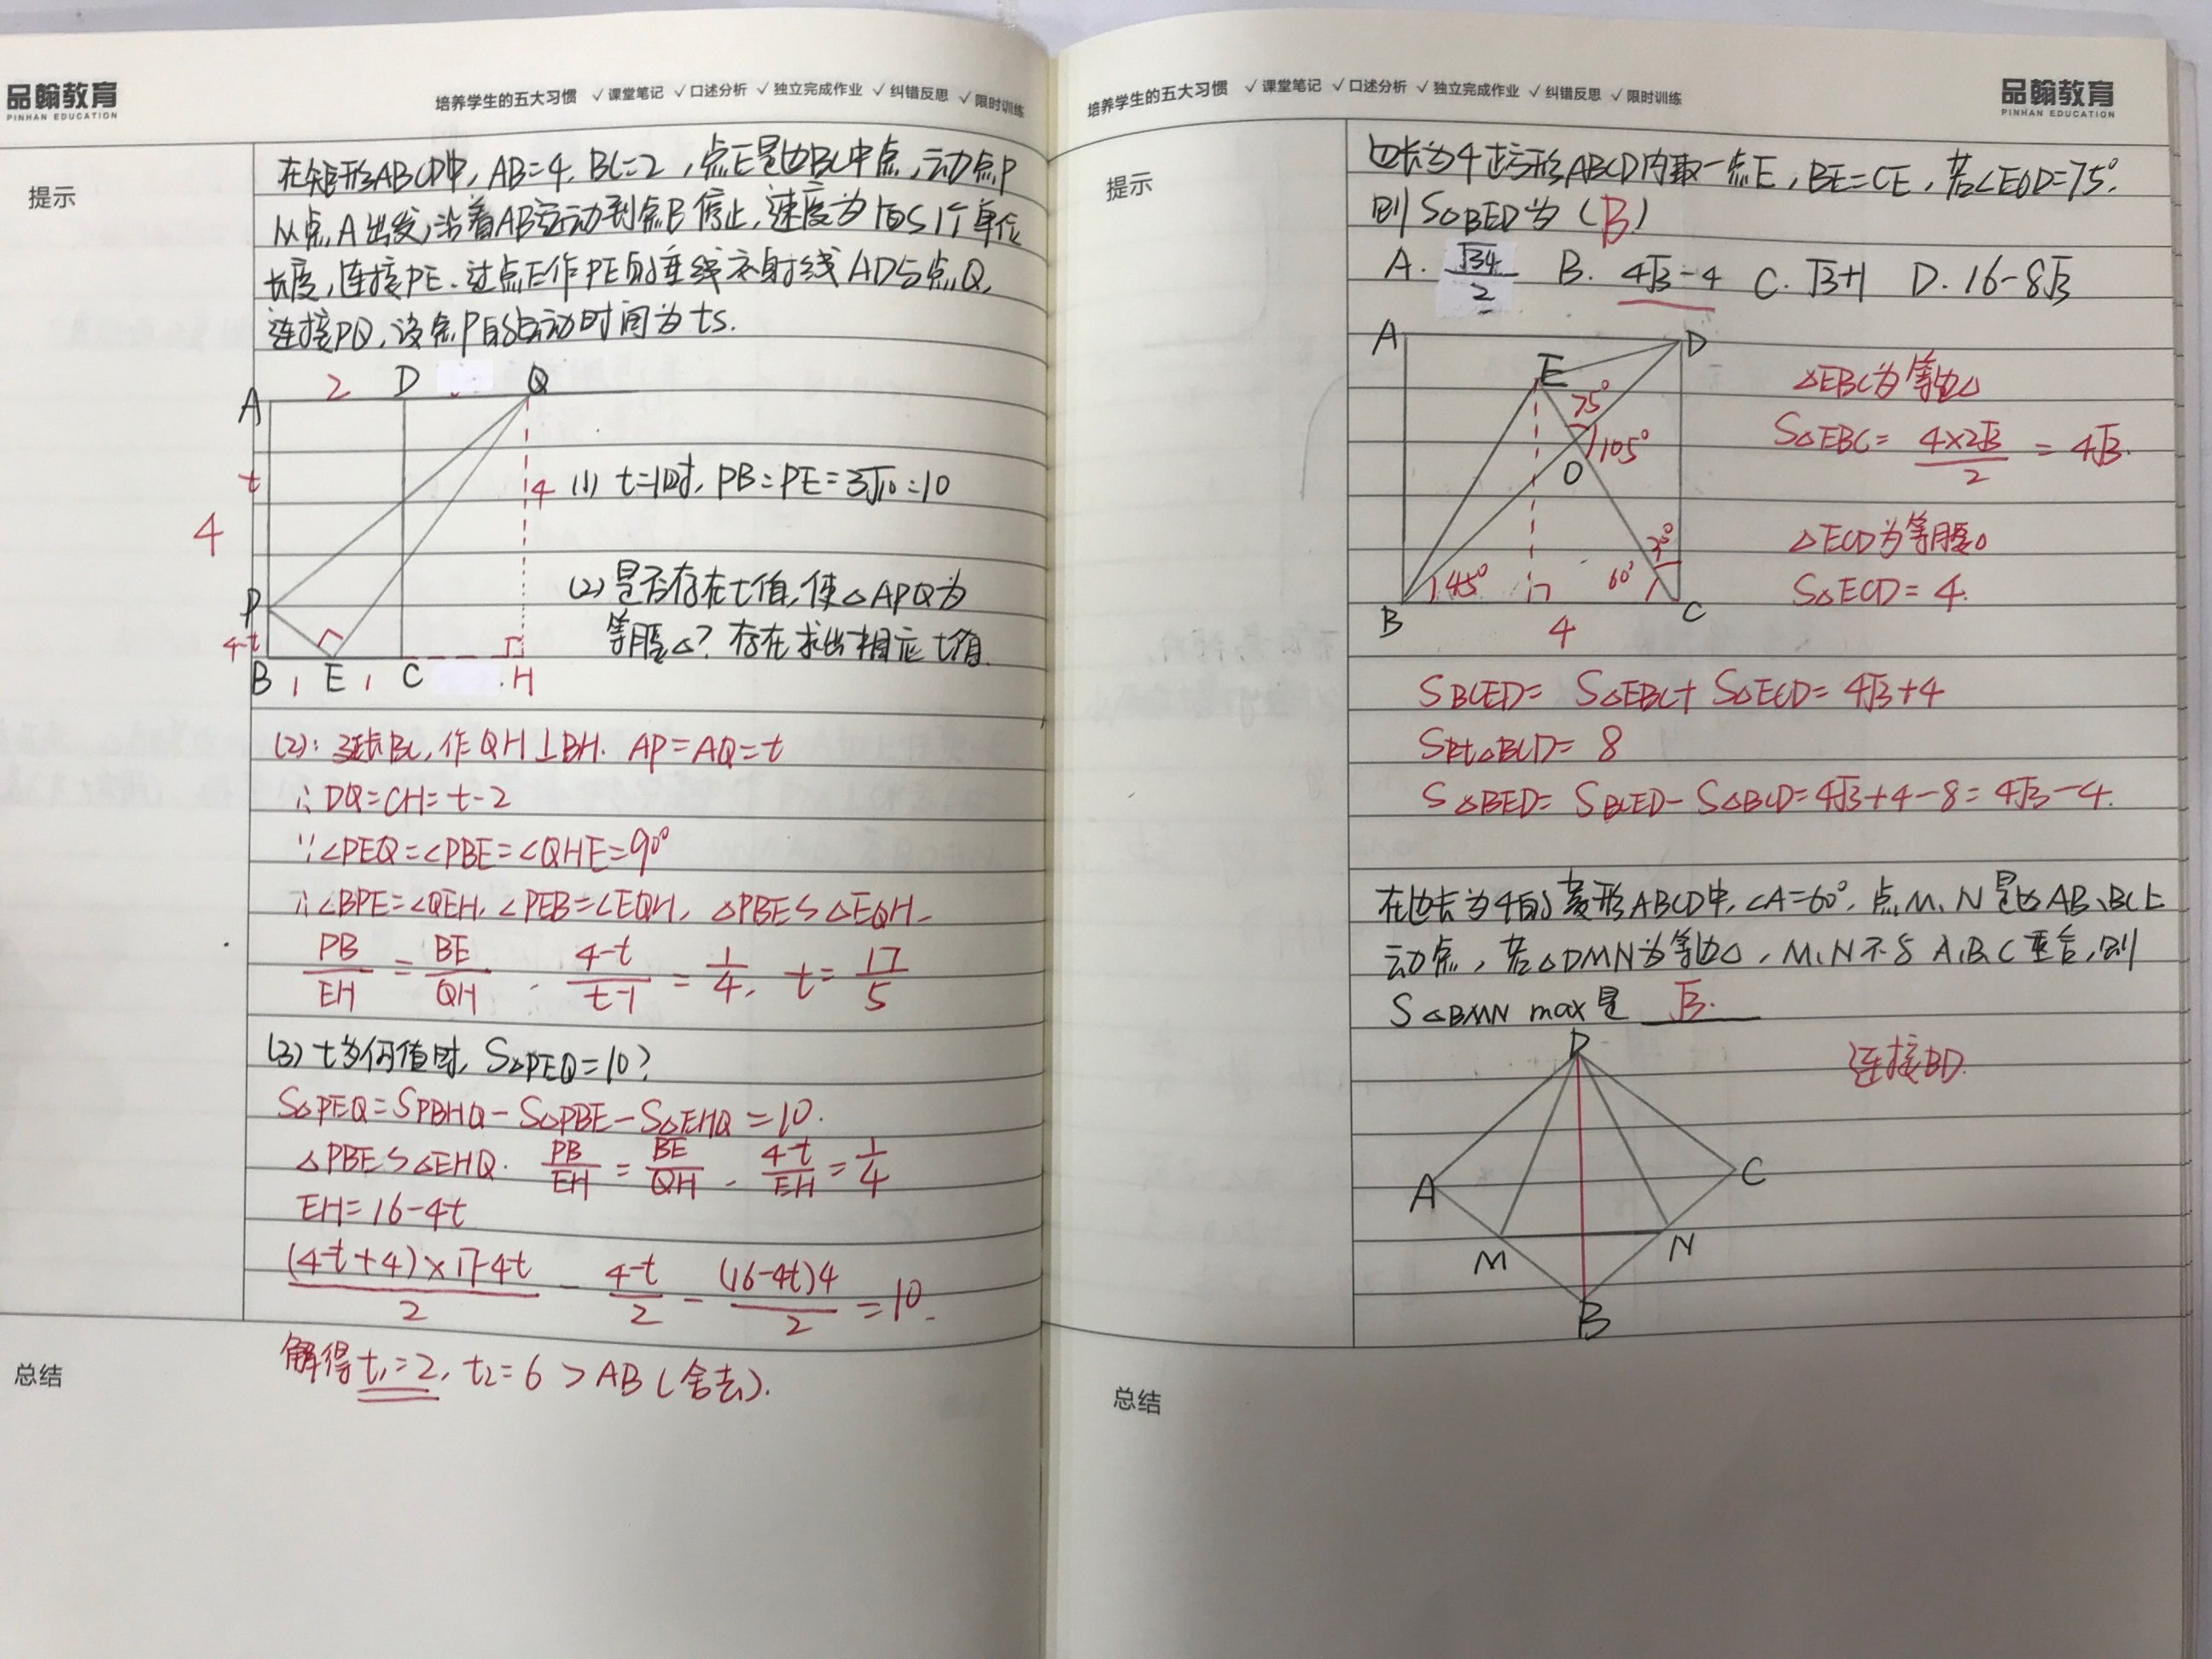 品翰教育
PINHAN EDUCATION
培养学生的五大习惯 √课堂笔记 √口述分析 √独立完成作业 √纠错反思 √限时训练
提示
在矩形ABCD中, AB=4, BC=2, 点E是边BC中点, 动点P
从点A出发, 沿着AB运动到点B停止, 速度为每s1个单位
长度, 连接PE. 过点E作PE的垂线交射线AD与点Q,
连接PQ, 设点P的运动时间为ts.
A 2 D Q
t
4
P
4-t
B 1 E 1 C H
4
(1) t=1时, PB=PE=3√10=10
(2) 是否存在t值, 使△APQ为
等腰△? 存在求出相应t值.
(2): 延长BC, 作QH⊥BH. AP=AQ=t
∴DQ=CH=t-2
∵∠PEQ=∠PBE=∠QHE=90°
∴∠BPE=∠QEH, ∠PEB=∠EQH, △PBE∽△EQH
PB/EH = BE/QH . 4-t/t-1 = 1/4, t= 17/5
(3) t为何值时, S△PEQ=10?
S△PEQ=SPBHQ-S△PBE-S△EHQ=10.
△PBE∽△EHQ. PB/EH = BE/QH . 4-t/EH = 1/4
EH=16-4t
(4-t+4)×17-4t/2 - 4-t/2 - (16-4t)4/2 =10.
解得t₁=2, t₂=6>AB(舍去).
总结
培养学生的五大习惯 √课堂笔记 √口述分析 √独立完成作业 √纠错反思 √限时训练
品翰教育
PINHAN EDUCATION
提示
边长为4正方形ABCD内取一点E, BE=CE, 若∠EOD=75°.
则S△BED为(B)
A. √34/2 B. 4√3-4 C. √3+1 D. 16-8√3
A E D
75°
105°
O
45° 60° 30°
B 4 C
△EBC为等边△
S△EBC= 4×2√3/2 = 4√3.
△ECD为等腰△
S△ECD=4.
SBCED= S△EBC+ S△ECD=4√3+4
SRt△BCD= 8
S△BED= SBCED- S△BCD=4√3+4-8=4√3-4.
在边长为4的菱形ABCD中, ∠A=60°, 点M、N是边AB、BC上
动点, 若△DMN为等边△, M、N不与A、B、C重合, 则
S△BMN max是 √3.
连接BD.
D
A C
M N
B
总结